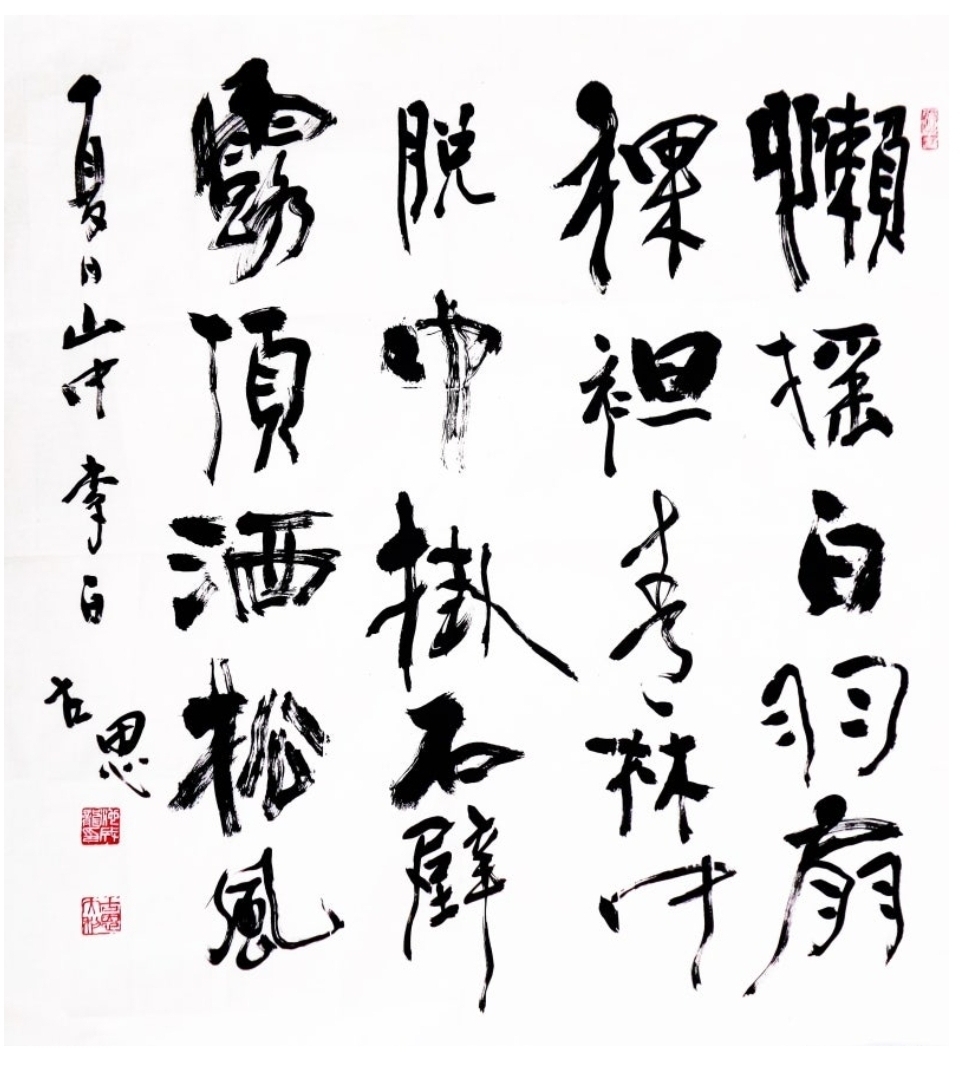 懶搖白羽扇
裸袒青林中
脫巾掛石壁
露頂洒松風
夏日山中 李白
古思